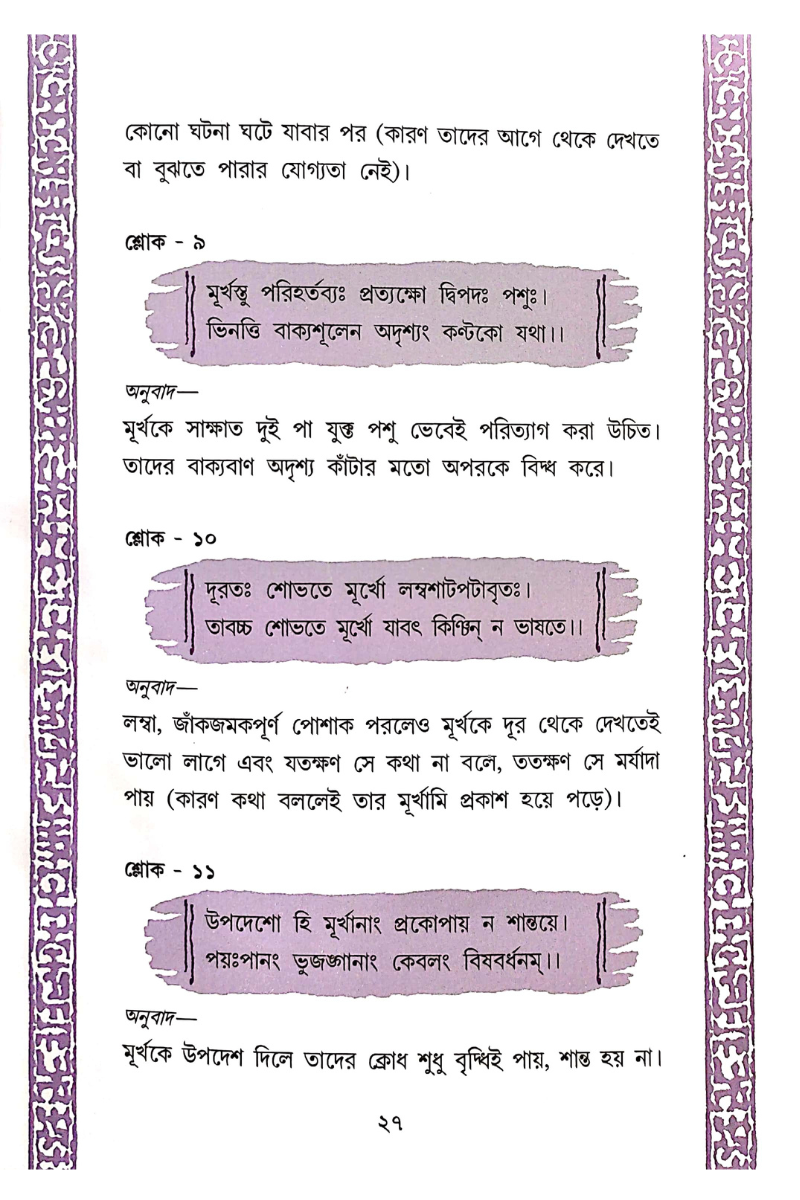 কোনো ঘটনা ঘটে যাবার পর (কারণ তাদের আগে থেকে দেখতে
বা বুঝতে পারার যোগ্যতা নেই)।
শ্লোক - ৯
মূর্খস্তু পরিহর্তব্যঃ প্রত্যক্ষো দ্বিপদঃ পশুঃ।
ভিনত্তি বাক্যশূলেন অদৃশ্যং কণ্টকো যথা।।
অনুবাদ—
মূর্খকে সাক্ষাত দুই পা যুক্ত পশু ভেবেই পরিত্যাগ করা উচিত।
তাদের বাক্যবাণ অদৃশ্য কাঁটার মতো অপরকে বিদ্ধ করে।
শ্লোক - ১০
দূরতঃ শোভতে মূর্খো লম্বশাটপটাবৃতঃ।
তাবচ্চ শোভতে মূর্খো যাবৎ কিঞ্চিন্ ন ভাষতে।।
অনুবাদ—
লম্বা, জাঁকজমকপূর্ণ পোশাক পরলেও মূর্খকে দূর থেকে দেখতেই
ভালো লাগে এবং যতক্ষণ সে কথা না বলে, ততক্ষণ সে মর্যাদা
পায় (কারণ কথা বললেই তার মূর্খামি প্রকাশ হয়ে পড়ে)।
শ্লোক - ১১
উপদেশো হি মূর্খানাং প্রকোপায় ন শান্তয়ে।
পয়ঃপানং ভুজঙ্গানাং কেবলং বিষবর্ধনম্।।
অনুবাদ—
মূর্খকে উপদেশ দিলে তাদের ক্রোধ শুধু বৃদ্ধিই পায়, শান্ত হয় না।
২৭